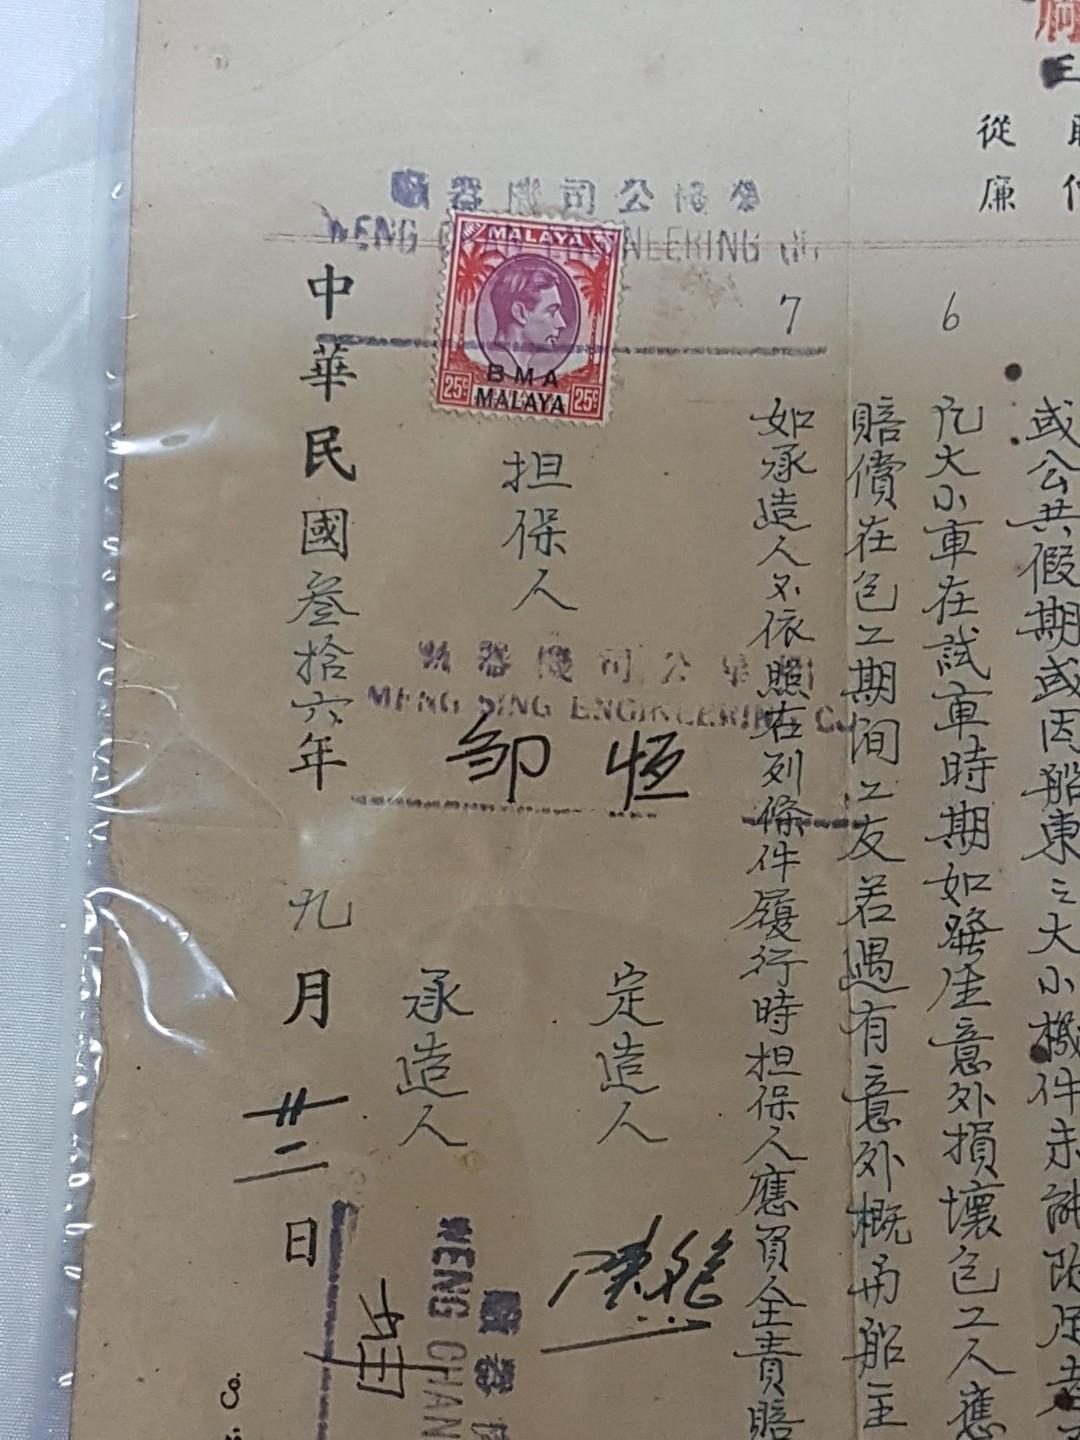 從
廉
或公共假期或因船東之大小機件未
6
凡大小車在試車時期如發生意外損壞包工人應
賠償在包工期間工友若遇有意外概由船主
7
如承造人不依照右列條件履行時担保人應負全責賠
公司機器
ENGINEERING
MALAYA
BMA
MALAYA
25c 25c
担保人
公司機器
MENG SING ENGINEERING CO
邹恒
定造人
承造人
WENG CHAN
中華民國叁拾六年九月廿二日